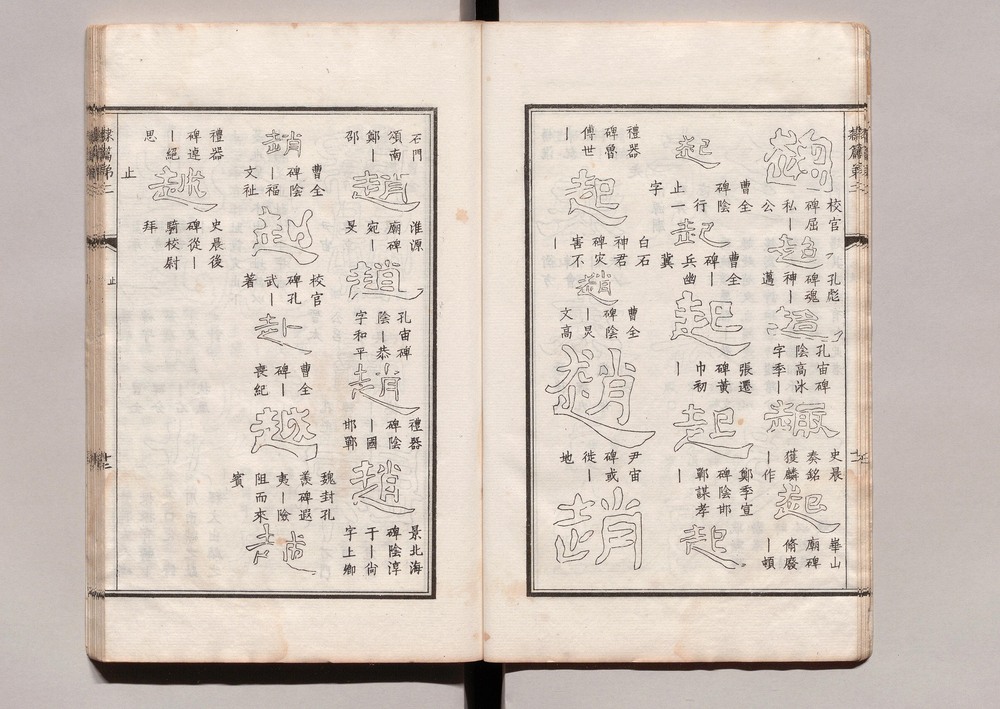 趨
校官
碑屈
私｜
公
超
孔彪
碑魂
神｜
邁
超
孔宙碑
陰高冰
字季｜
趣
史晨
奏銘
獲麟
｜作
起
崋山
廟碑
脩廢
｜頓
起
曹全
碑陰
行
止一
字
起
曹全
碑｜
兵幽
冀
起
張遷
碑黃
巾初
｜
起
鄭季宣
碑陰邯
鄲謀孝
｜
起
禮器
碑魯
傅世
｜
起
白石
神君
碑灾
害不
｜
趙
曹全
碑陰
｜炅
文高
趙
尹宙
碑或
徙｜
地
趙
石門
頌南
鄭｜
邵
趙
淮源
廟碑
宛｜
旻
趙
孔宙碑
陰｜恭
字和平
趙
禮器
碑陰
｜國
邯鄲
趙
景北海
碑陰淳
于｜尚
字上卿
趙
曹全
碑陰
｜福
文祉
赳
校官
碑孔
武｜
著
赴
曹全
碑｜
喪紀
越
魏封孔
羨碑遐
夷｜險
阻而來
賓
越
禮器
碑連
｜絕
思
越
史晨後
碑從｜
騎校尉
拜
止